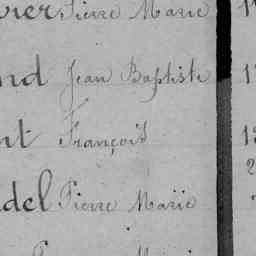 vier Pierre Marie 1
nd Jean Baptiste 1
nt François 1
del Pierre Marie
Marie